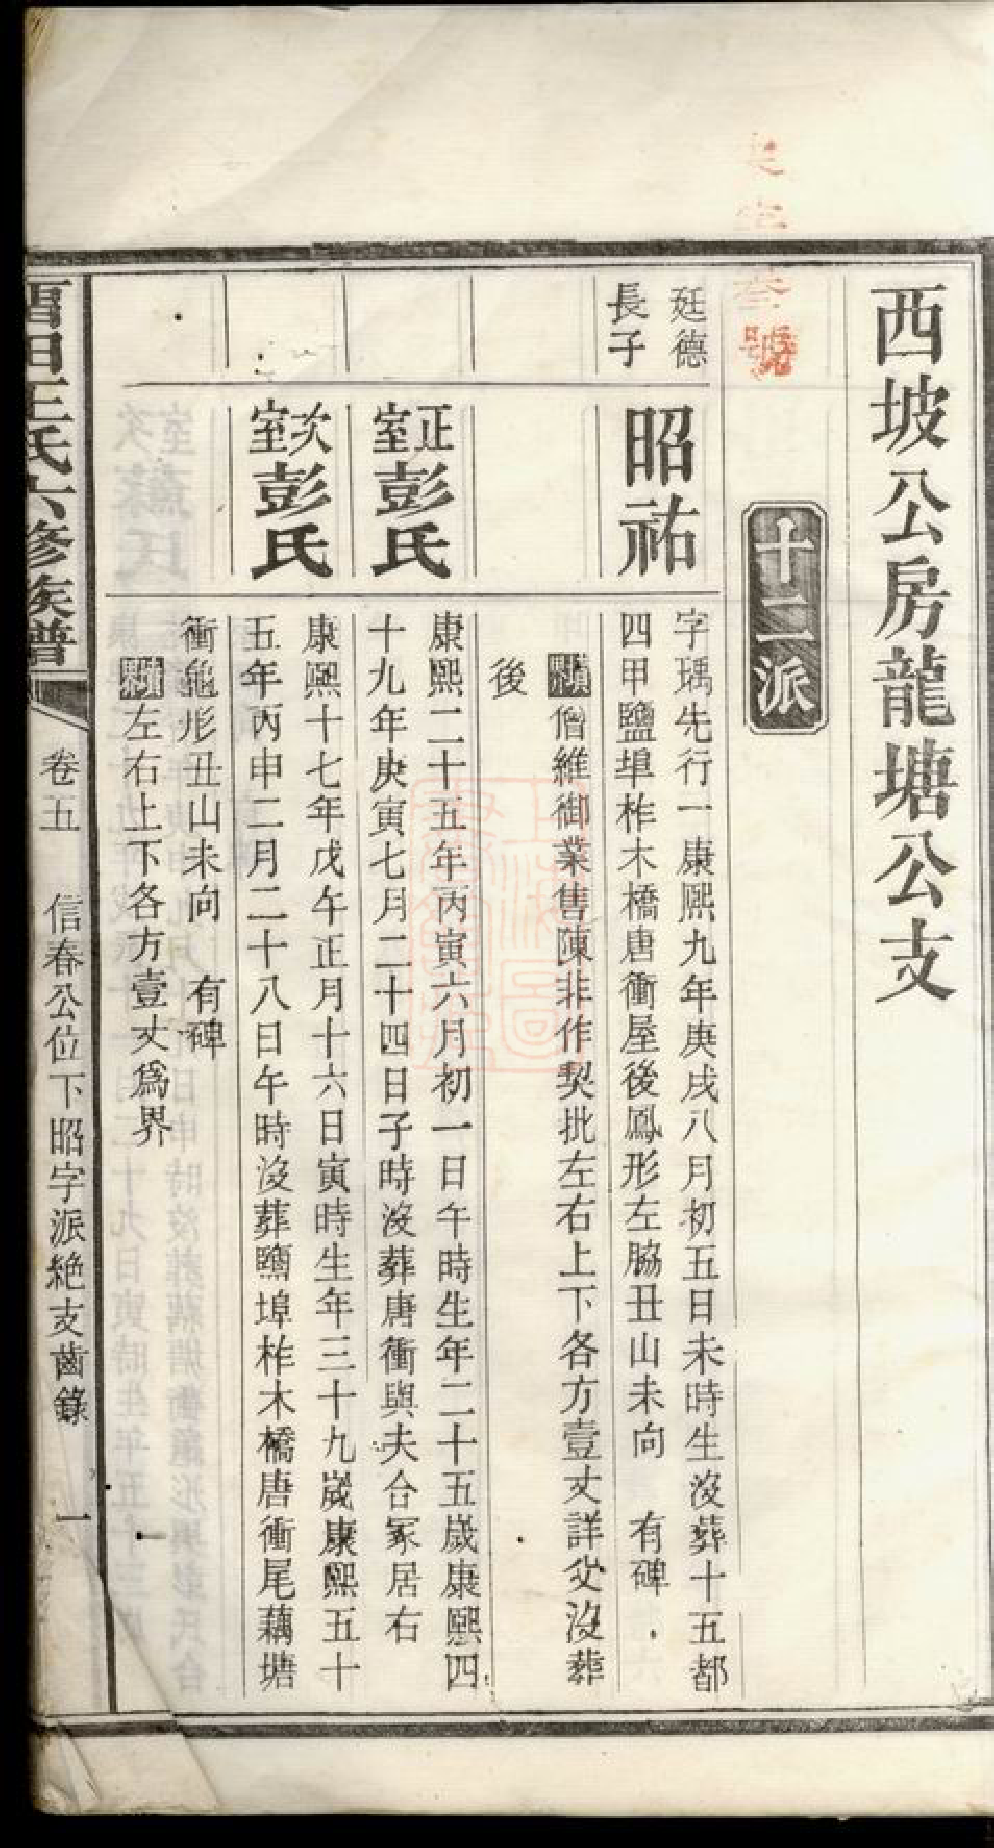 西坡公房龍塘公支
十二派
廷德
長子
昭祐
字瑀先行一康熙九年庚戌八月初五日未時生沒葬十五都
四甲鹽埠柞木橋唐衝屋後鳳形左脇丑山未向 有碑
僧維御業售陳非作契批左右上下各方壹丈詳父沒葬
後
正室彭氏
康熙二十五年丙寅六月初一日午時生年二十五歲康熙四
十九年庚寅七月二十四日子時沒葬唐衝與夫合冢居右
次室彭氏
康熙十七年戊午正月十六日寅時生年三十九歲康熙五十
五年丙申二月二十八日午時沒葬鹽埠柞木橋唐衝尾藕塘
衝龜形丑山未向 有碑
左右上下各方壹丈爲界
王氏六修族譜
卷五
信春公位下昭字派絕支齒錄
一